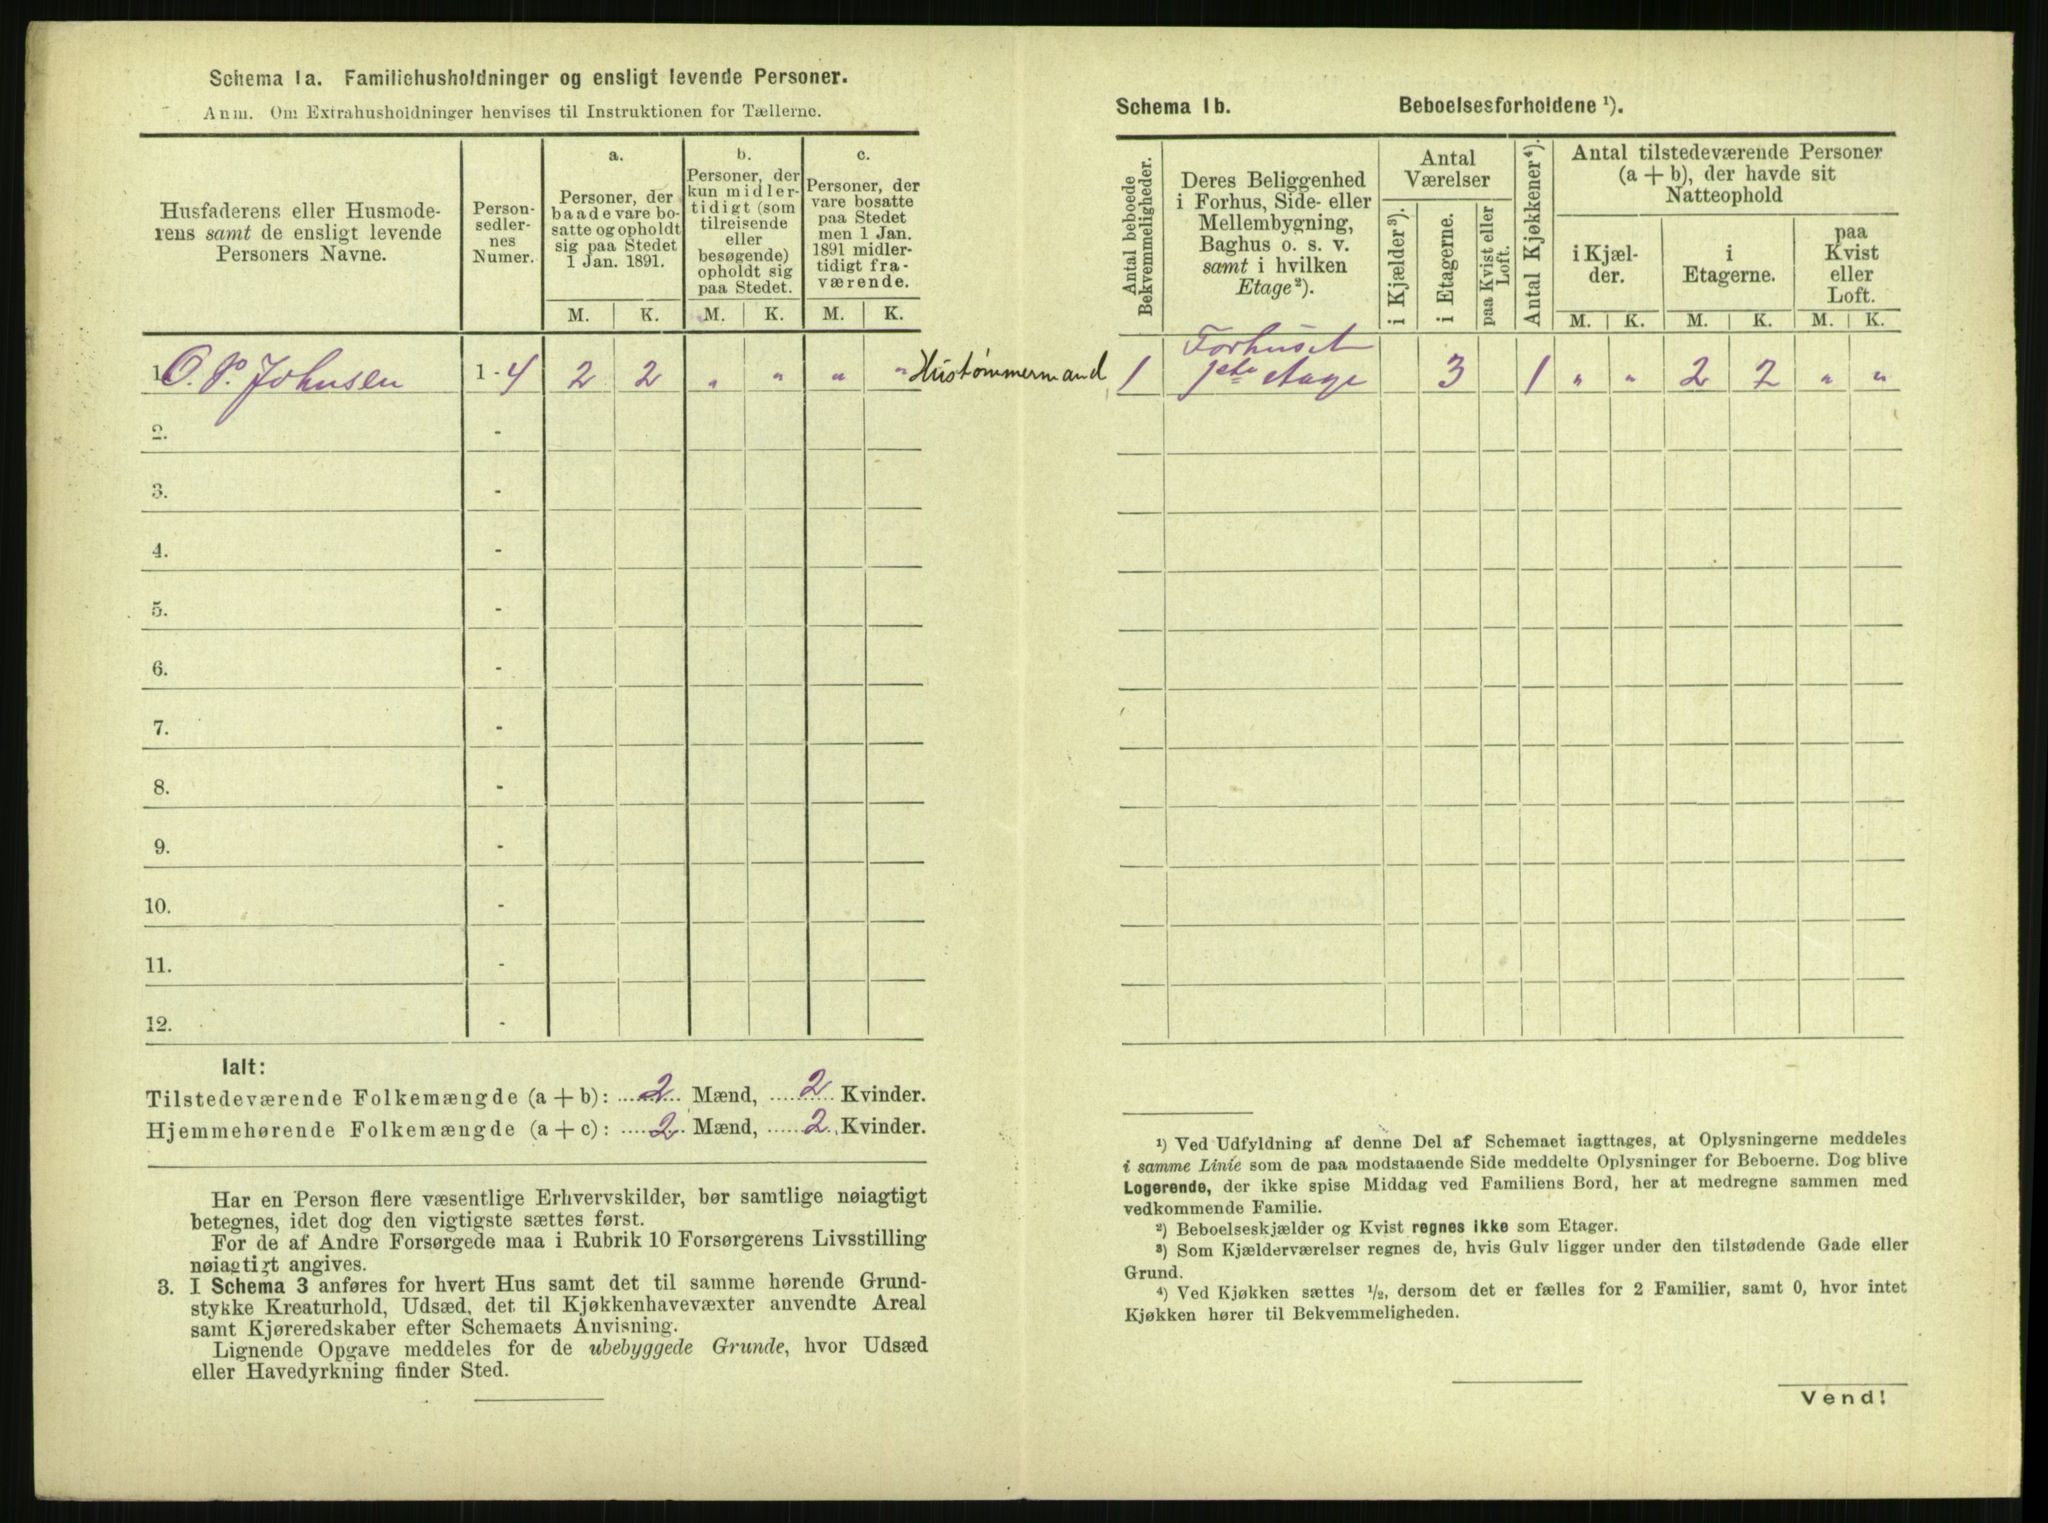 Schema 1a. Familiehusholdninger og ensligt levende Personer.
Anm. Om Extrahusholdninger henvises til Instruktionen for Tællerne.
Husfaderens eller Husmode-
rens samt de ensligt levende
Personers Navne.
Person-
sedler-
nes
Numer.
a.
Personer, der
baade vare bo-
satte og opholdt
sig paa Stedet
1 Jan. 1891.
b.
Personer, der
kun midler-
tidigt (som
tilreisende
eller
besøgende)
opholdt sig
paa Stedet.
c.
Personer, der
vare bosatte
paa Stedet
men 1 Jan.
1891 midler-
tidigt fra-
værende.
M. K. M. K. M. K.
1. O. P. Johnsen 1 - 4 2 2 " " " " Hustømmermand
2. -
3. -
4. -
5. -
6. -
7. -
8. -
9. -
10. -
11. -
12. -
Ialt:
Tilstedeværende Folkemængde (a + b): 2 Mænd, 2 Kvinder.
Hjemmehørende Folkemængde (a + c): 2 Mænd, 2 Kvinder.
Har en Person flere væsentlige Erhvervskilder, bør samtlige nøiagtigt
betegnes, idet dog den vigtigste sættes først.
For de af Andre Forsørgede maa i Rubrik 10 Forsørgerens Livsstilling
nøiagtigt angives.
3. I Schema 3 anføres for hvert Hus samt det til samme hørende Grund-
stykke Kreaturhold, Udsæd, det til Kjøkkenhavevæxter anvendte Areal
samt Kjøreredskaber efter Schemaets Anvisning.
Lignende Opgave meddeles for de ubebyggede Grunde, hvor Udsæd
eller Havedyrkning finder Sted.
Schema 1b. Beboelsesforholdene ¹).
Antal beboede
Bekvemmeligheder.
Deres Beliggenhed
i Forhus, Side- eller
Mellembygning,
Baghus o. s. v.
samt i hvilken
Etage²).
Antal
Værelser
i Kjælder ³).
i Etagerne.
paa Kvist eller
Loft.
Antal Kjøkkener⁴).
Antal tilstedeværende Personer
(a + b), der havde sit
Natteophold
i Kjæl-
der.
i
Etagerne.
paa
Kvist
eller
Loft.
M. K. M. K. M. K.
Forhuset
1 1ste etage 3 1 " " 2 2 " "
¹) Ved Udfyldning af denne Del af Schemaet iagttages, at Oplysningerne meddeles
i samme Linie som de paa modstaaende Side meddelte Oplysninger for Beboerne. Dog blive
Logerende, der ikke spise Middag ved Familiens Bord, her at medregne sammen med
vedkommende Familie.
²) Beboelseskjælder og Kvist regnes ikke som Etager.
³) Som Kjælderværelser regnes de, hvis Gulv ligger under den tilstødende Gade eller
Grund.
⁴) Ved Kjøkken sættes ½, dersom det er fælles for 2 Familier, samt 0, hvor intet
Kjøkken hører til Bekvemmeligheden.
Vend!